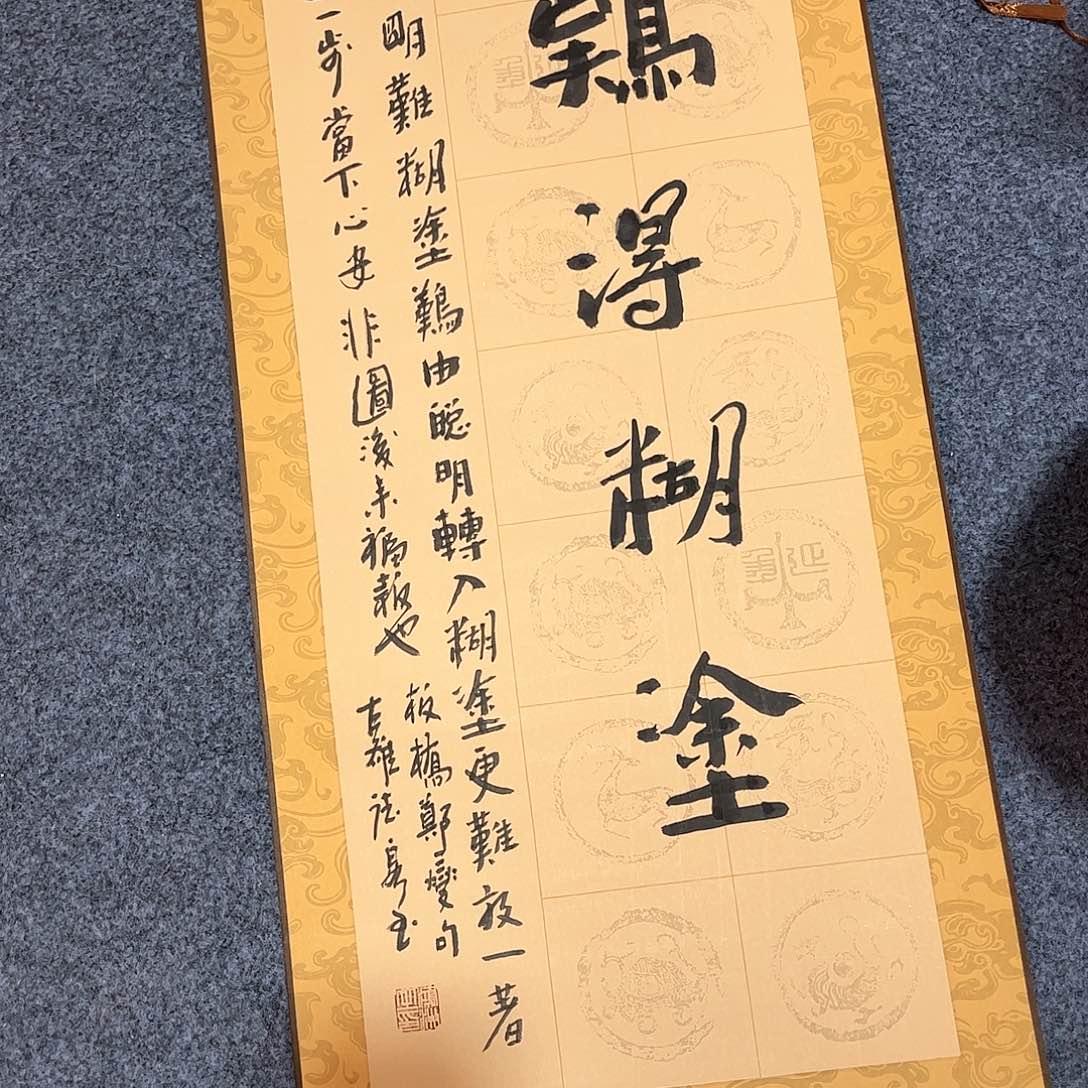 難得糊塗
朙難糊塗難由聰明轉入糊塗更難放一著
一步當下心安非圖後來福報也
板橋鄭燮句